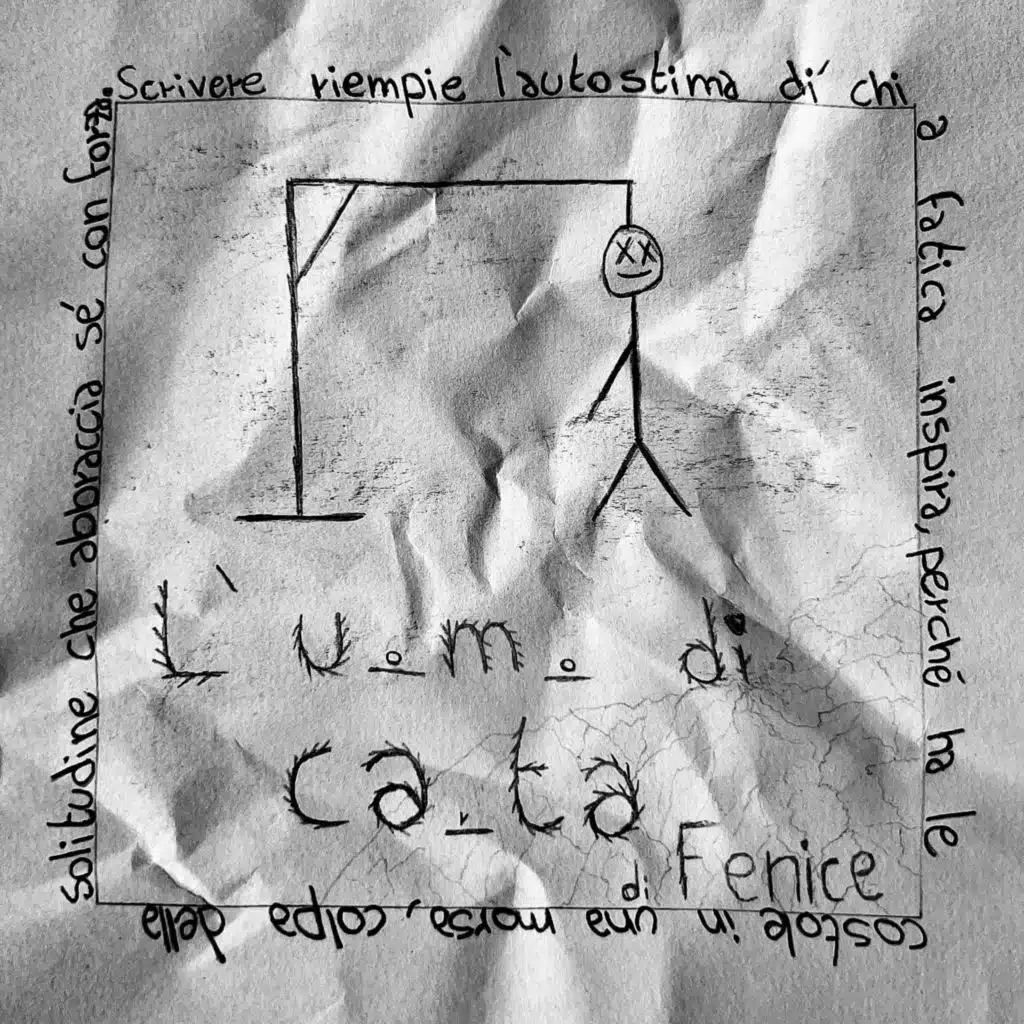 Scrivere riempie l'autostima di chi
a fatica inspira, perché ha le
costole in una morsa, colpa della
solitudine che abbraccia sé con forza.
L' u o m o di
ca r ta
di Fenice